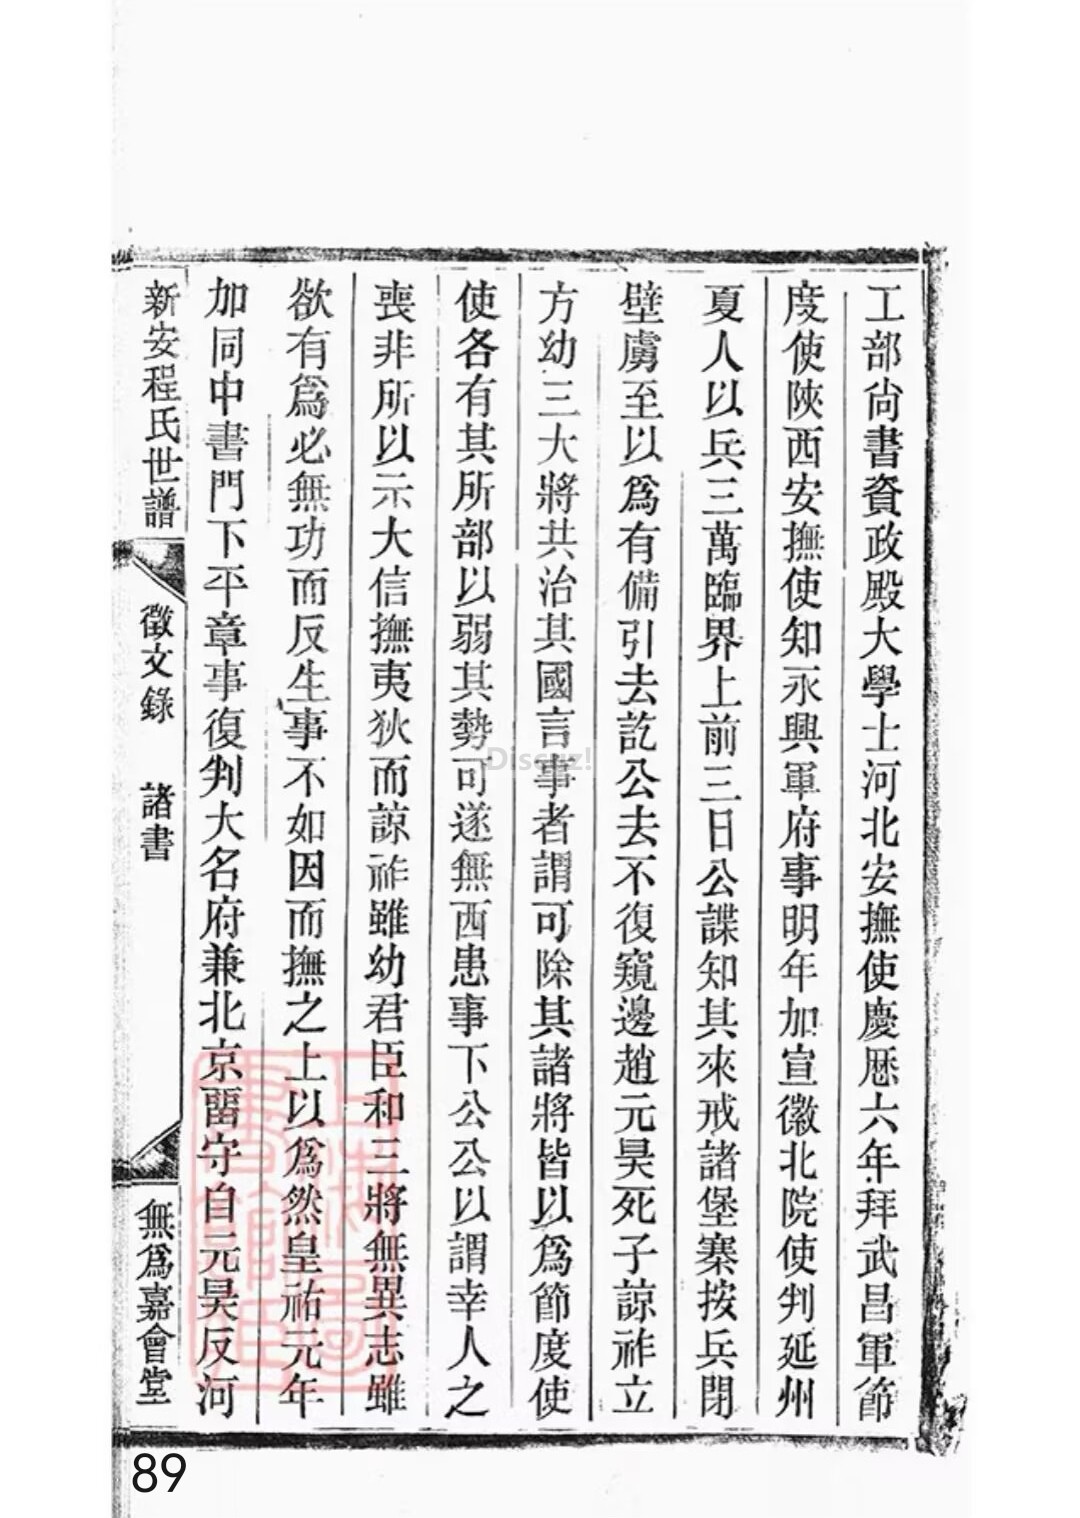 工部尚書資政殿大學士河北安撫使慶厯六年拜武昌軍節
度使陝西安撫使知永興軍府事明年加宣徽北院使判延州
夏人以兵三萬臨界上前三日公諜知其來戒諸堡寨按兵閉
壁虜至以爲有備引去訖公去不復窺邊趙元昊死子諒祚立
方幼三大將共治其國言事者謂可除其諸將皆以爲節度使
使各有其所部以弱其勢可遂無西患事下公公以謂幸人之
喪非所以示大信撫夷狄而諒祚雖幼君臣和三將無異志雖
欲有爲必無功而反生事不如因而撫之上以爲然皇祐元年
加同中書門下平章事復判大名府兼北京畱守自元昊反河
新安程氏世譜 徵文錄 諸書 無爲嘉會堂
上海圖書館藏
Discuz!
89